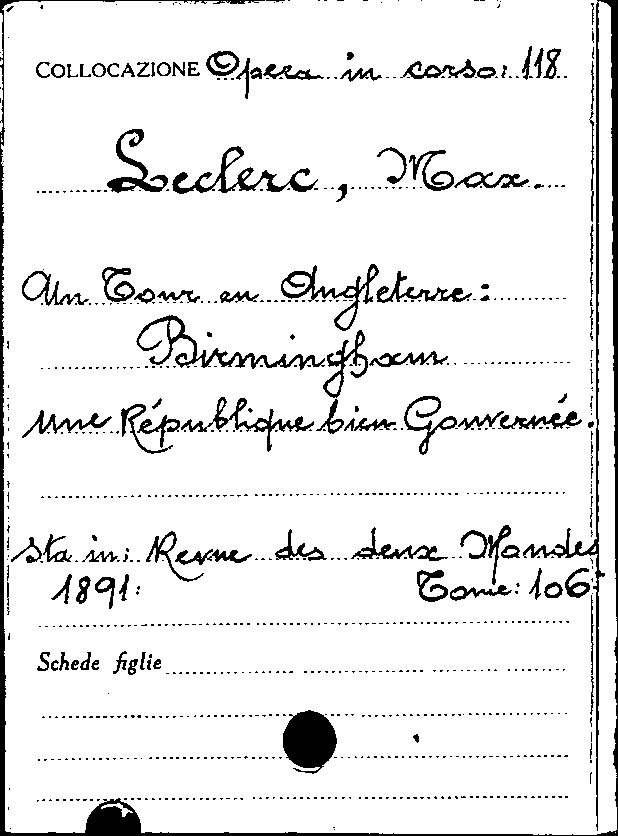 COLLOCAZIONE Opera in corso: 118
Leclerc, Max.
Un Tour en Angleterre:
Birmingham
Une République bien Gouvernée.
Sta in: Revue des deux Mondes
1891: Tome: 106:
Schede figlie